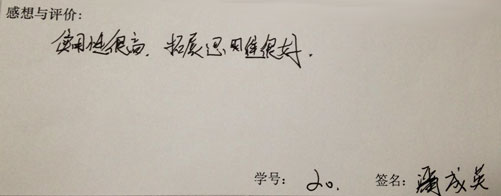 感想与评价:
使用性很高,拓展思维很好.
学号: 20. 签名: 潘成英